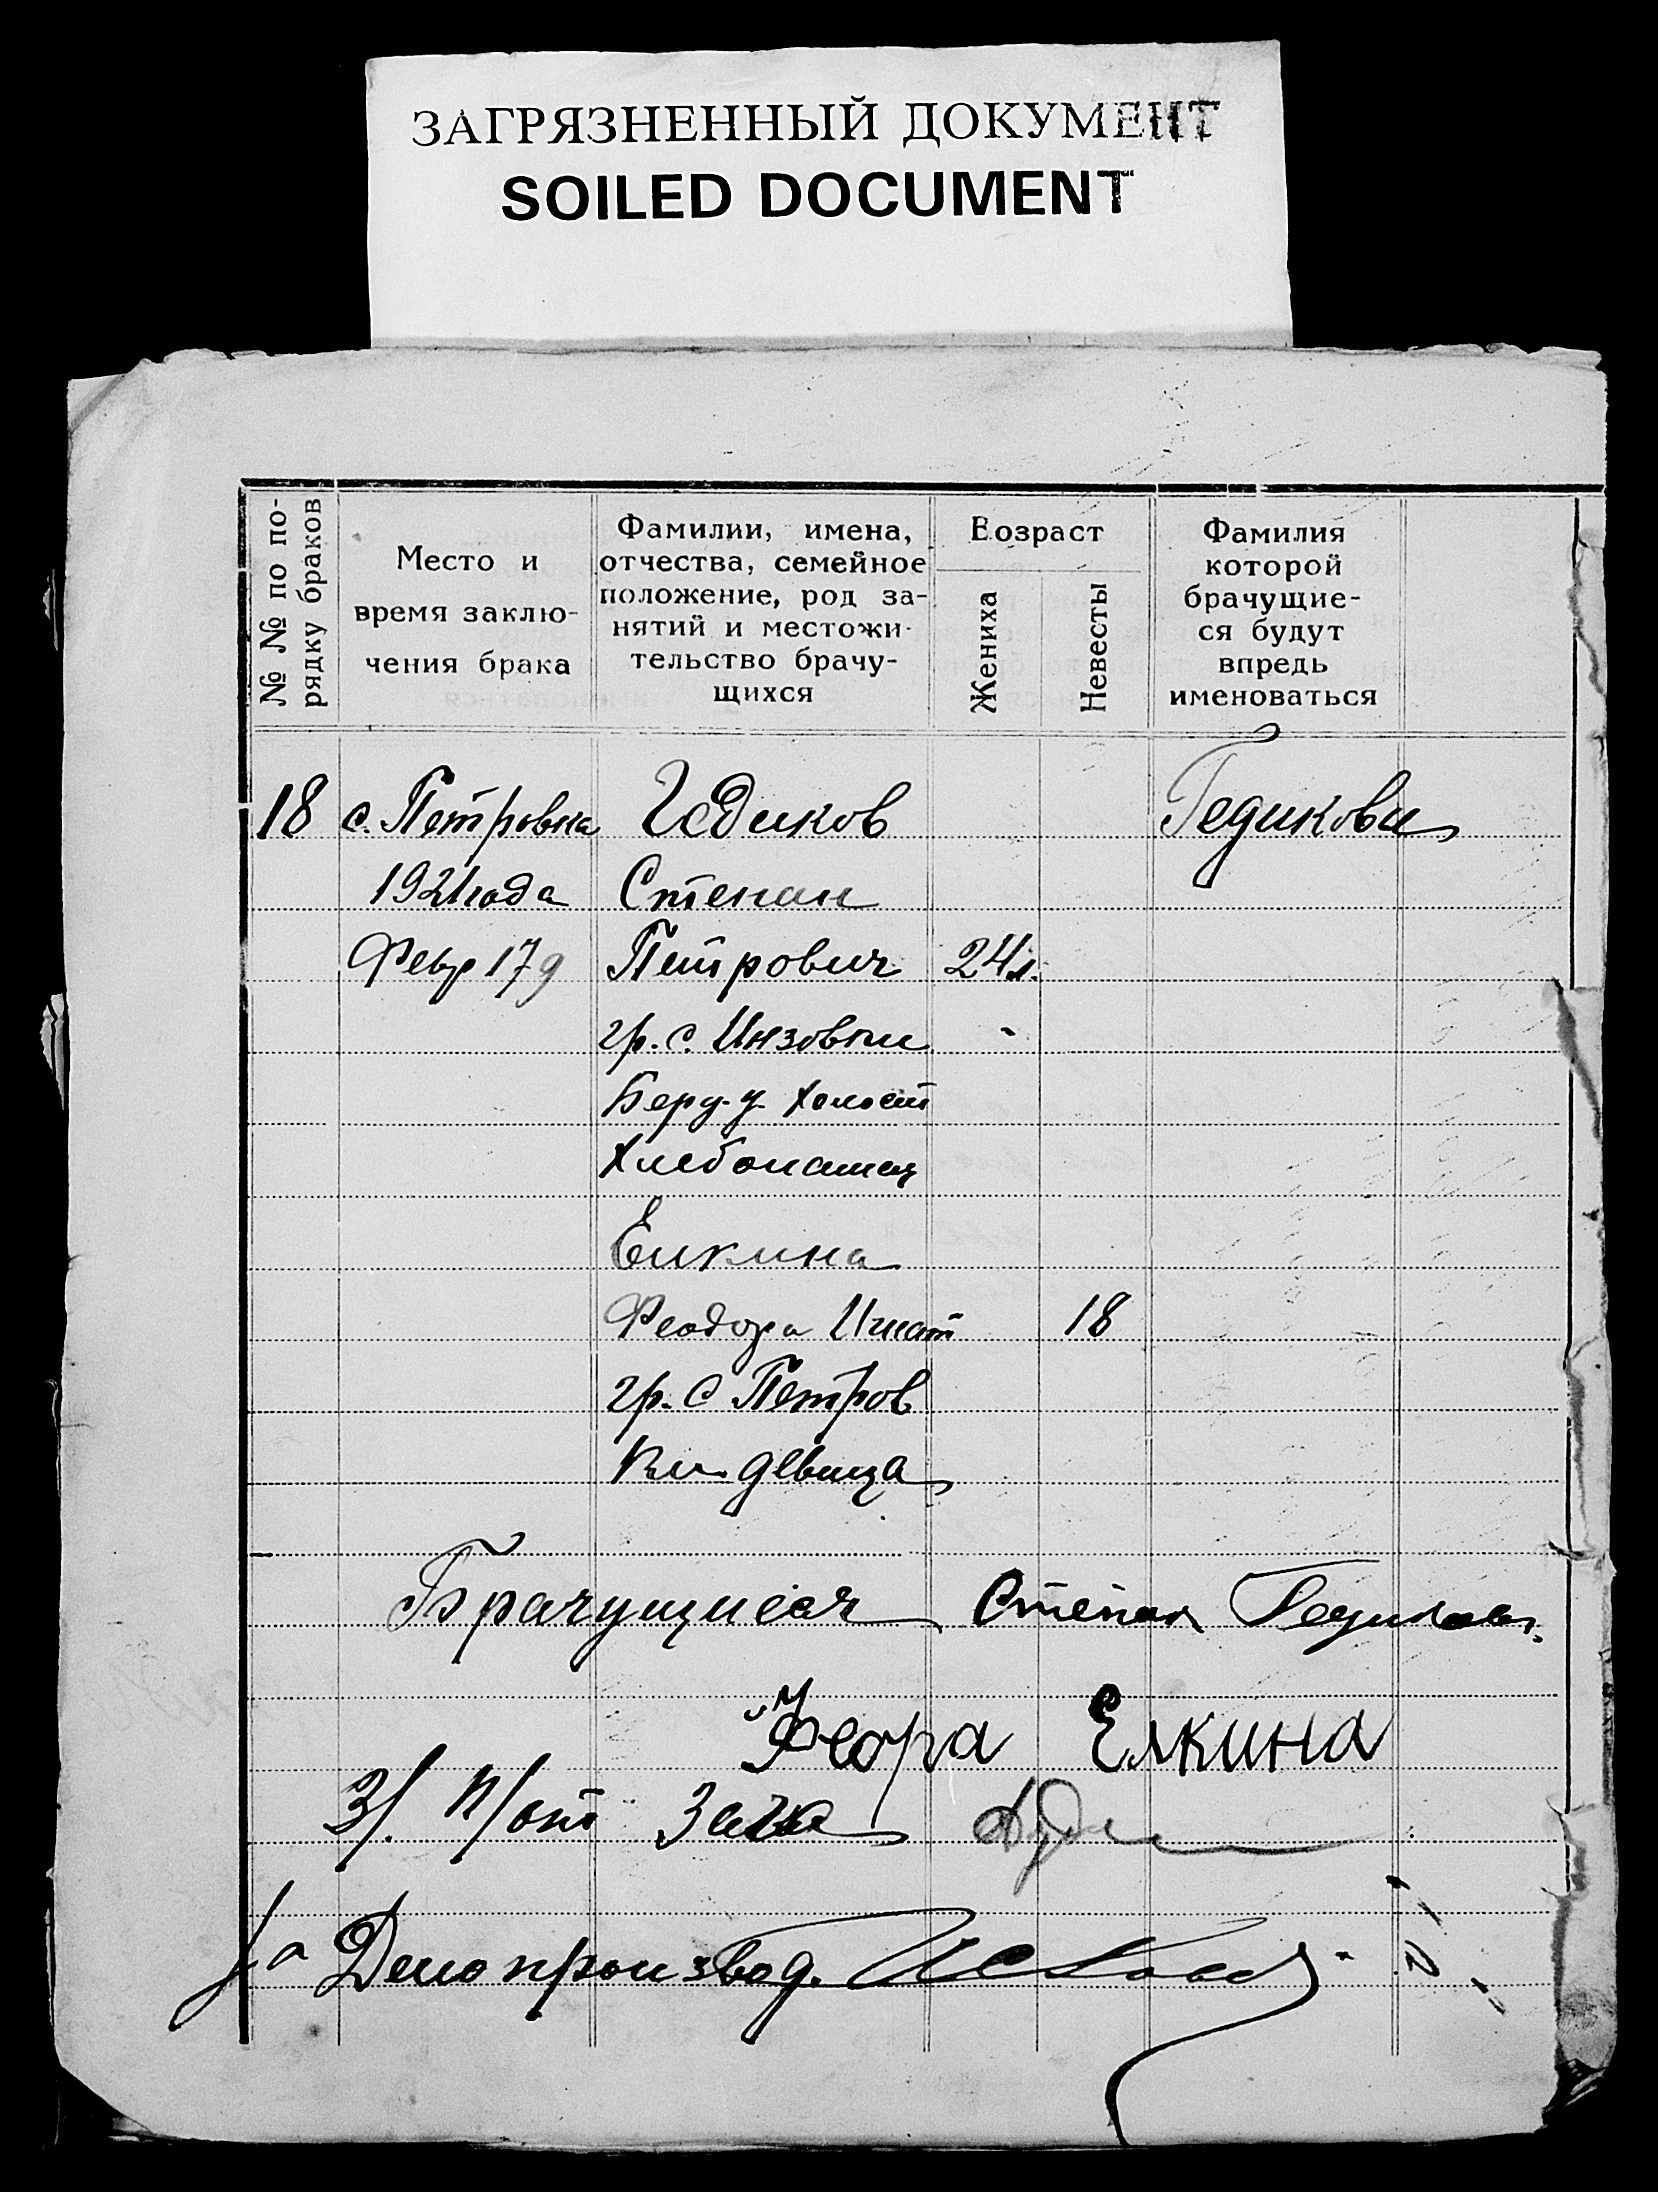 ЗАГРЯЗНЕННЫЙ ДОКУМЕНТ
SOILED DOCUMENT
№ № по по-
рядку браков
Место и
время заклю-
чения брака
Фамилии, имена,
отчества, семейное
положение, род за-
нятий и местожи-
тельство брачу-
щихся
Возраст
Жениха
Невесты
Фамилия
которой
брачущие-
ся будут
впредь
именоваться
18 с. Петровка Гедиков Гедиковы
1921 года Степан
Февр 17 д Петрович 24 л.
гр. с. Инзовки
Берд. у. холост
Хлебопашец
Елкина
Феодора Игнат 18
гр. с Петров
ки девица
Брачущиеся Степан Гедиков
Феора Елкина
З/. п/от Загса
за Делопроизвод.